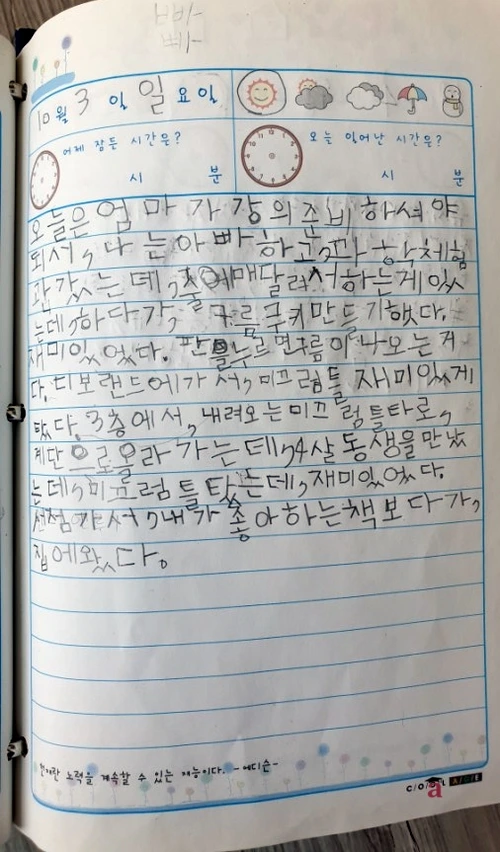 10월 3일 일요일
어제 잠든 시간은?
시 분
오늘 일어난 시간은?
시 분
오늘은 엄마가 강의준비하셔야
되서, 나는 아빠하고, 과학체험
관 갔는데, 줄에매달려서하는게있
는데, 하다가, 구름쿠키만들기했다.
재미있었다. 판을누르면구름이나오는거
다. 디보랜드에가서, 미끄럼틀 재미있게
탔다. 3층에서, 내려오는미끄럼틀타로,
계단으로올라가는데, 4살동생을만났
는데, 미끄럼틀탔는데, 재미있었다.
서점가서, 내가좋아하는책보다가,
집에왔다.
노력을 계속할 수 있는 재능이다. -에디슨-